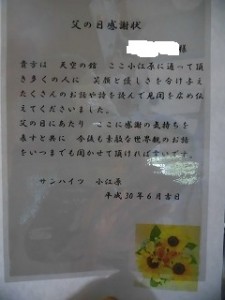 父の日感謝状
様
貴方は 天空の館 ここ小江原に通って頂
き多くの人に 笑顔と優しさを分け与え
たくさんのお話や詩を読んで見聞を広め伝
えてくださいました。
父の日にあたり ここに感謝の気持ちを
表すと共に 今後も素敵な世界観のお話
をいつまでも聞かせて頂ければ幸いです。
サンハイツ 小江原
平成30年6月吉日